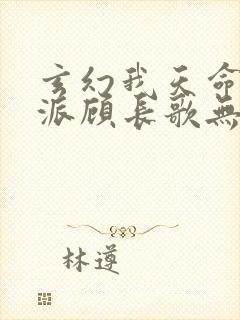 玄幻我天命
派顾长歌無
林遵